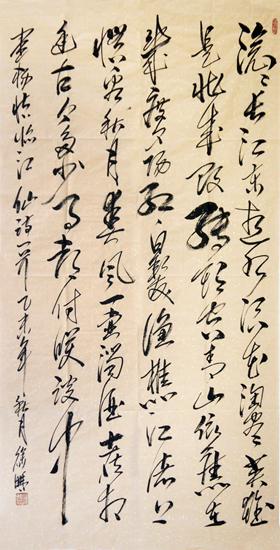 滚滚长江东逝水浪花淘尽英雄
是非成败转头空青山依旧在
几度夕阳红白发渔樵江渚上
惯看秋月春风一壶浊酒喜相
逢古今多少事都付笑谈中
杨慎临江仙词一首乙未年秋月